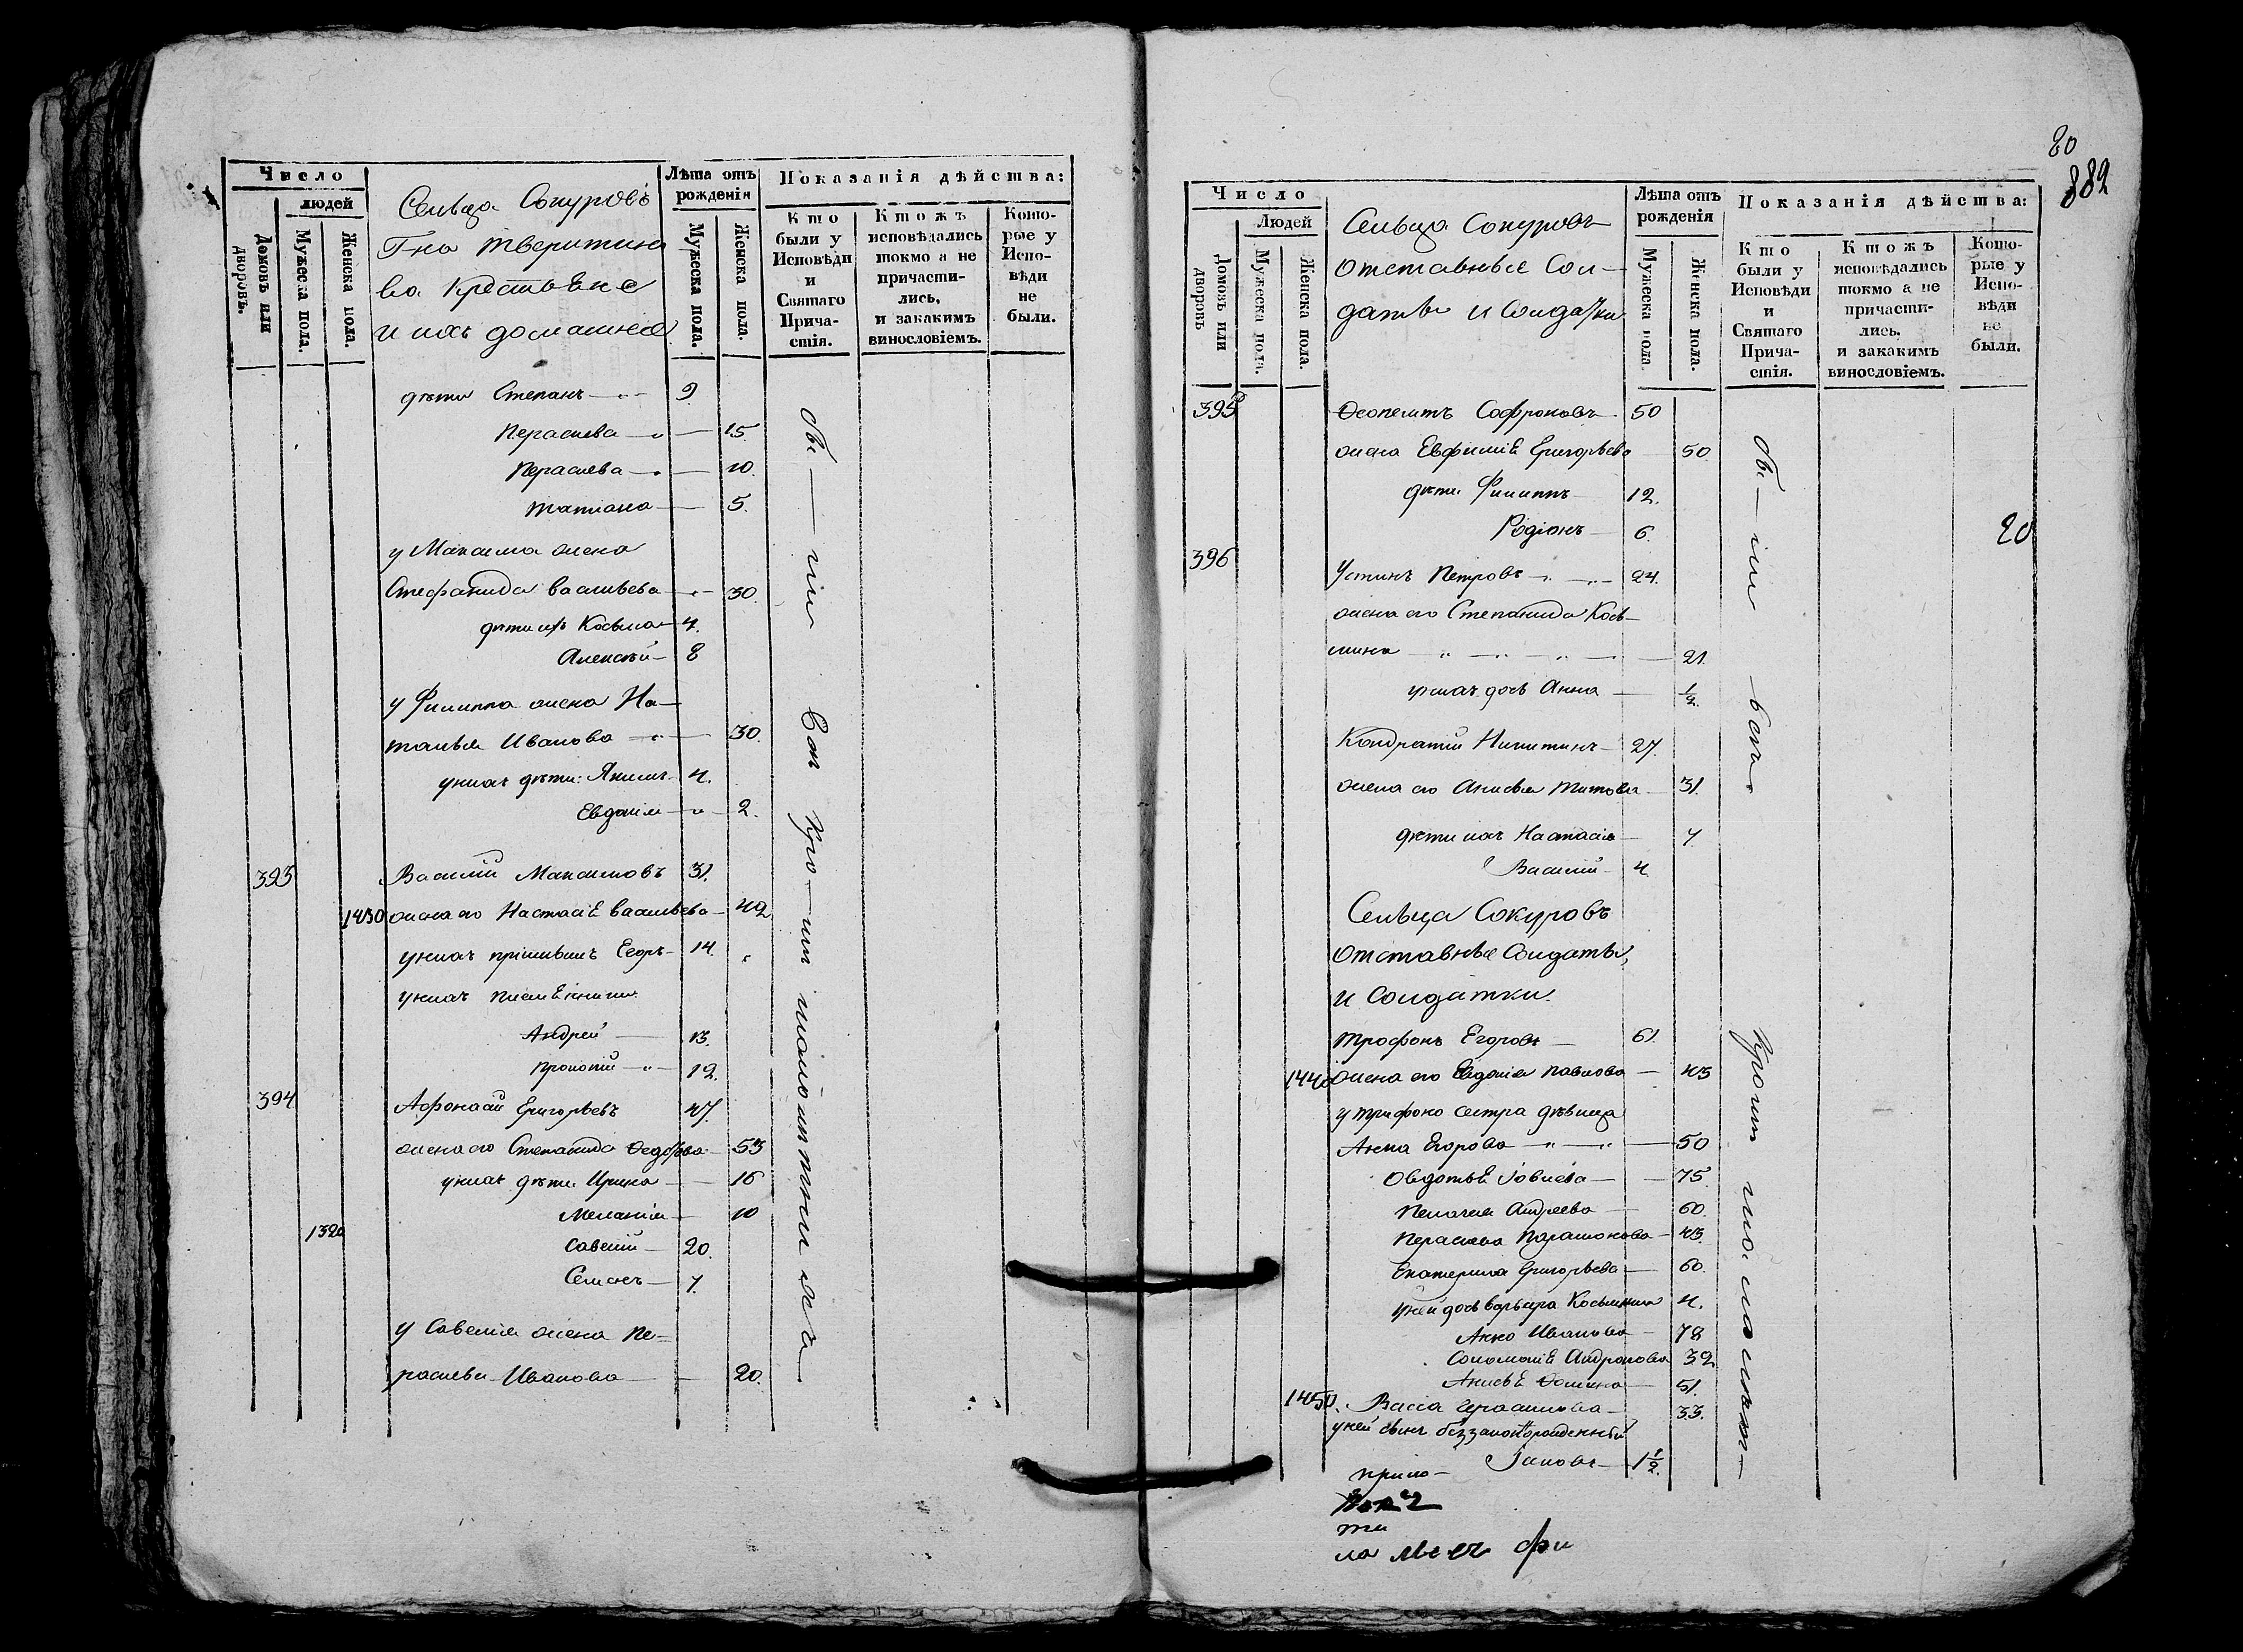 Число
людей
Домовъ или дворовъ.
Мужеска пола.
Женска пола.
Сельца Сокуровъ
Г-на Тверитино
ва Крестьяне
и ихъ домашніе
Лѣта отъ
рожденія
Мужеска пола.
Женска пола.
Показанія дѣйства:
Кто
были у
Исповѣди
и
Святаго
Прича-
стія.
Ктожъ
исповѣдались
токмо а не
причасти-
лись,
и закакимъ
винословіемъ.
Кото-
рые у
Испо-
вѣди
не
были.
дѣти Степанъ 9
Пераскева 15
Пераскева 10.
Татіана 5.
у Максима жена
Стефанида Васильева 30.
дѣти ихъ Косьма 4.
Алексѣй 8
у Филиппа жена На-
талья Иванова 30.
у нихъ дѣти: Якимъ 4.
Евдокія 2.
393 Василій Максимовъ 31.
1430 жена его Настасія Васильева 42
у нихъ Егоръ 14.
у нихъ племянники
Андрей 13.
Прокопій 12.
394 Афонасій Григорьевъ 47.
жена его Степанида Федорова 53
у нихъ дѣти Ирина 16
Меланія 10
1320 Савелій 20.
Семенъ 7.
у Савелія жена Пе-
раскева Иванова 20.
20
882
Число
Людей
Домовъ или дворовъ
Мужеска пола.
Женска пола.
Сельца Сокуровъ
Отставные Сол-
даты и Солдатки
Лѣта отъ
рожденія
Мужеска пола
Женска пола.
Показанія дѣйства:
Кто
были у
Исповѣди
и
Святаго
Прича-
стія.
Ктожъ
исповѣдались
токмо а не
причасти-
лись.
и закакимъ
винословіемъ.
Кото-
рые у
Испо-
вѣди
не
были.
395 Феопемтъ Софроновъ 50
жена Евфимія Григорьева 50
дѣти Филиппъ 12.
Родіонъ 6.
20
396 Устинъ Петровъ 24.
жена его Степанида Кось-
мина 21.
у нихъ дочь Анна 1/2.
Кондратій Никитинъ 27.
жена его Анисья Титова 31.
дѣти ихъ Настасія 7
Василій 4
Сельца Сокуровъ
Отставные Солдаты,
и Солдатки.
Трофонъ Егоровъ 61.
1440 жена его Евдокія Павлова 43
у Трифона сестра дѣвица
Анна Егорова 50
Овдотья Іовлева 75
Пелагея Андреева 60.
Пераскева Парамонова 43.
Екатерина Григорьева 60.
у ней дочь Варвара Косьмина 4.
Анна Иванова 72
Соломонія Андронова 32
Анисья Фомина 51.
1450. Васса Герасимова 33.
у ней сынъ беззаконорожденный
Іаковъ 1 1/2.